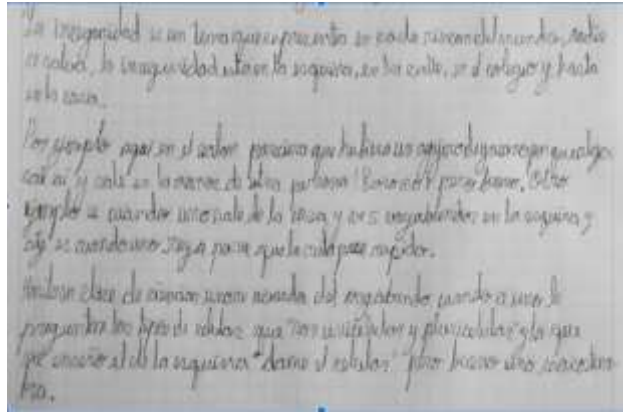 La inseguridad es un tema que se presenta en cada rincon del mundo, nadie
se salva, la inseguridad esta en la esquina, en la calle, en el colegio y hasta
en la casa.
Por ejemplo aqui en el salon pareciera que hubiera un agujero de gusano que algo
cae ai y sale en la mano de otra persona! pero bueno. Otro
ejemplo es cuando uno sale de la casa y ve 5 vagabundos en la esquina y
es cuando uno para que la cuide rapido.
clase de ciencias uno se acuerda del vagabundo cuando a uno le
preguntan los tipos de celulas que son unicelular y pluricelular y la que
me enseño el de la esquina "dame el celular" pero bueno uno